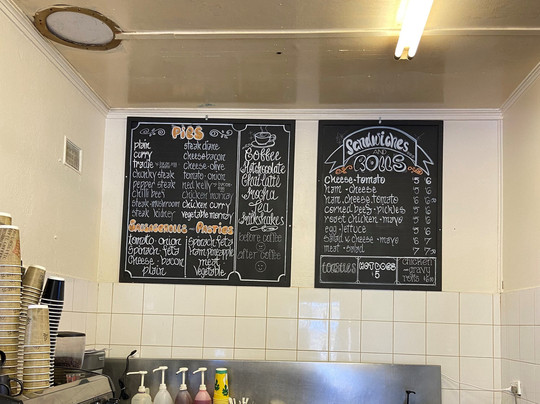 PIES
plain
curry
chunky steak
pepper steak
chilli beef
steak mushroom
steak kidney
steak diane
cheese bacon
cheese olive
tomato onion
red kelly
chicken mornay
chicken curry
vegetable mornay
SAUSAGEROLLS - PASTIES
tomato onion
spinach feta
cheese - bacon
plain
spinach feta
ham pineapple
meat
vegetable
Coffee
Hot chocolate
Chai latte
Mocha
Tea
Milkshakes
before coffee
after coffee
Sandwiches
AND
ROLLS
cheese - tomato 5 6
ham - cheese 5 6
ham . cheese . tomato 6
corned beef - pickles 5 6
roast chicken - mayo 6
egg - lettuce 5 6
salad & cheese - mayo 6 7
meat - salad 7
HOT DOGS
chicken
- gravy
rolls